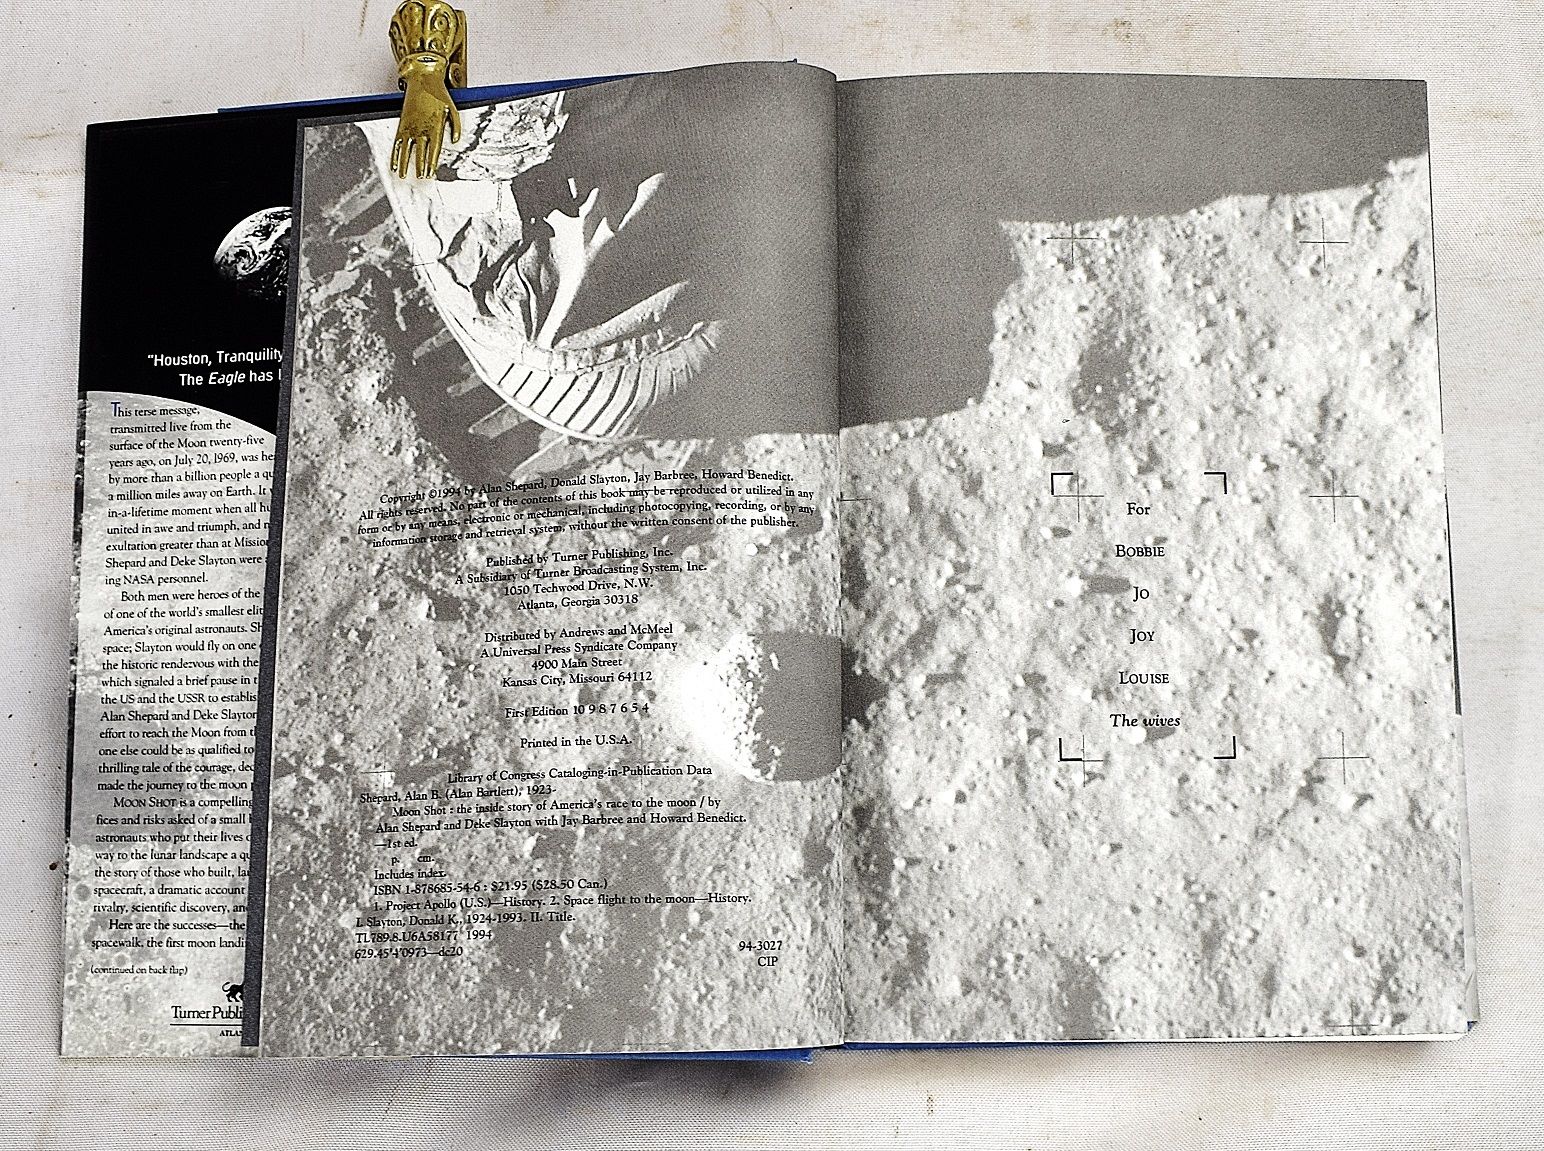 "Houston, Tranquility
The Eagle has
This terse message,
transmitted live from the
surface of the Moon twenty-five
years ago, on July 20, 1969, was
by more than a billion people a
a million miles away on Earth. It
in-a-lifetime moment when all
united in awe and triumph, and
exultation greater than at
Shepard and Deke Slayton were
ing NASA personnel.
Both men were heroes of the
of one of the world's smallest
America's original astronauts.
space; Slayton would fly on one
the historic rendezvous with the
which signaled a brief pause in
the US and the USSR to
Alan Shepard and Deke Slayton
effort to reach the Moon from
one else could be as qualified to
thrilling tale of the courage,
made the journey to the moon
MOON SHOT is a compelling
fices and risks asked of a small
astronauts who put their lives
way to the lunar landscape a
the story of those who built,
spacecraft, a dramatic account
rivalry, scientific discovery,
Here are the successes—the
spacewalk, the first moon
(continued on back flap)
Turner
Copyright ©1994 by Alan Shepard, Donald Slayton, Jay Barbree, Howard Benedict.
All rights reserved. No part of the contents of this book may be reproduced or utilized in any
form or by any means, electronic or mechanical, including photocopying, recording, or by any
information storage and retrieval system, without the written consent of the publisher.
Published by Turner Publishing, Inc.
A Subsidiary of Turner Broadcasting System, Inc.
1050 Techwood Drive, N.W.
Atlanta, Georgia 30318
Distributed by Andrews and McMeel
A Universal Press Syndicate Company
4900 Main Street
Kansas City, Missouri 64112
First Edition 10 9 8 7 6 5 4
Printed in the U.S.A.
Library of Congress Cataloging-in-Publication Data
Shepard, Alan B. (Alan Bartlett), 1923-
Moon Shot : the inside story of America's race to the moon / by
Alan Shepard and Deke Slayton with Jay Barbree and Howard Benedict.
—1st ed.
p. cm.
Includes index.
ISBN 1-878685-54-6 : $21.95 ($28.50 Can.)
1. Project Apollo (U.S.)—History. 2. Space flight to the moon—History.
I. Slayton, Donald K., 1924-1993. II. Title.
TL789.8.U6A58177 1994
629.45'4'0973—dc20
94-3027
CIP
For
BOBBIE
JO
JOY
LOUISE
The wives